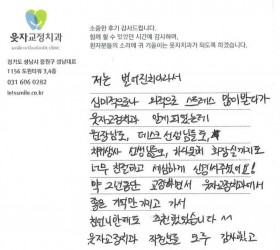 웃자교정치과
smile orthodontic clinic
경기도 성남시 중원구 성남대로
1156 도원타워 3,4층
031 606 0282
letssmile.co.kr
소중한 후기 감사드립니다.
함께 할 수 있었던 시간에 감사하며,
환자분들의 소리에 귀 기울이는 웃자치과가 되도록 하겠습니다.
저는 벋어진치아라서
심미적으로나 외적으로 스트레스 많이받다가
웃자교정치과 알게되었는데
원장님도, 데스크 선생님들도,
치위생사 선생님들도,
너무 친절하고 세심하게 신경써주셨어요!
약 2년동안 교정하면서 웃자교정치과에서
좋은 기억만 가지고 가서
친언니한테도 추천했었습니다 ㅋㅋ
웃자교정치과 직원분들 모두 감사하고